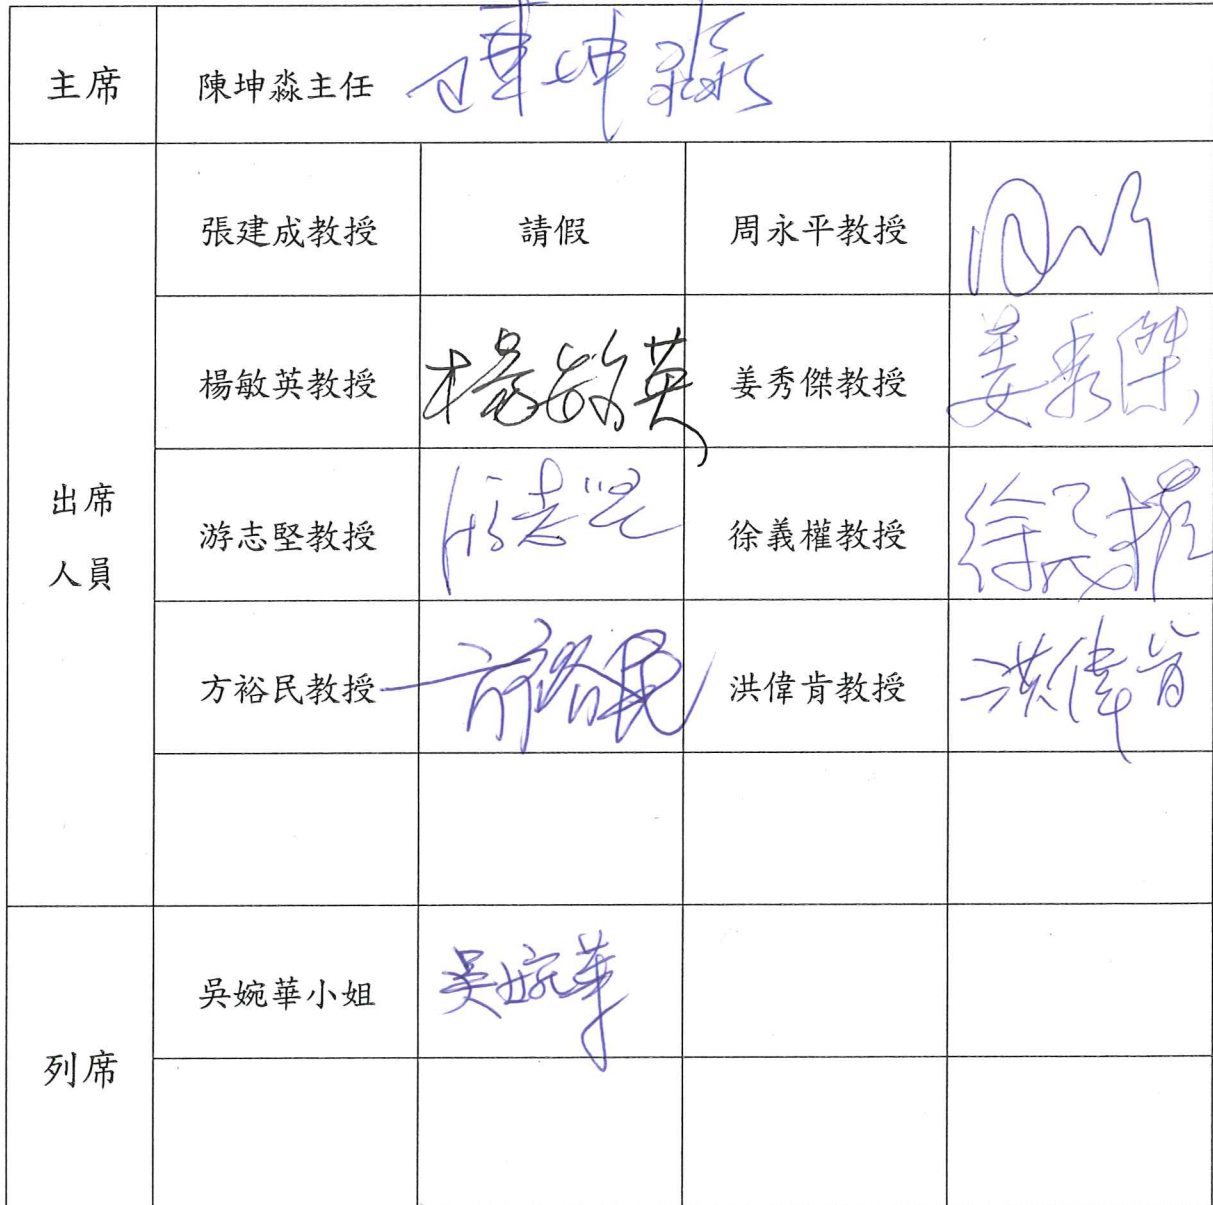 主席
陳坤淼主任 陳坤淼
出席
人員
張建成教授 請假 周永平教授
楊敏英教授 楊敏英 姜秀傑教授 姜秀傑
游志堅教授 游志堅 徐義權教授 徐義權
方裕民教授 方裕民 洪偉肯教授 洪偉肯
列席
吳婉華小姐 吳婉華